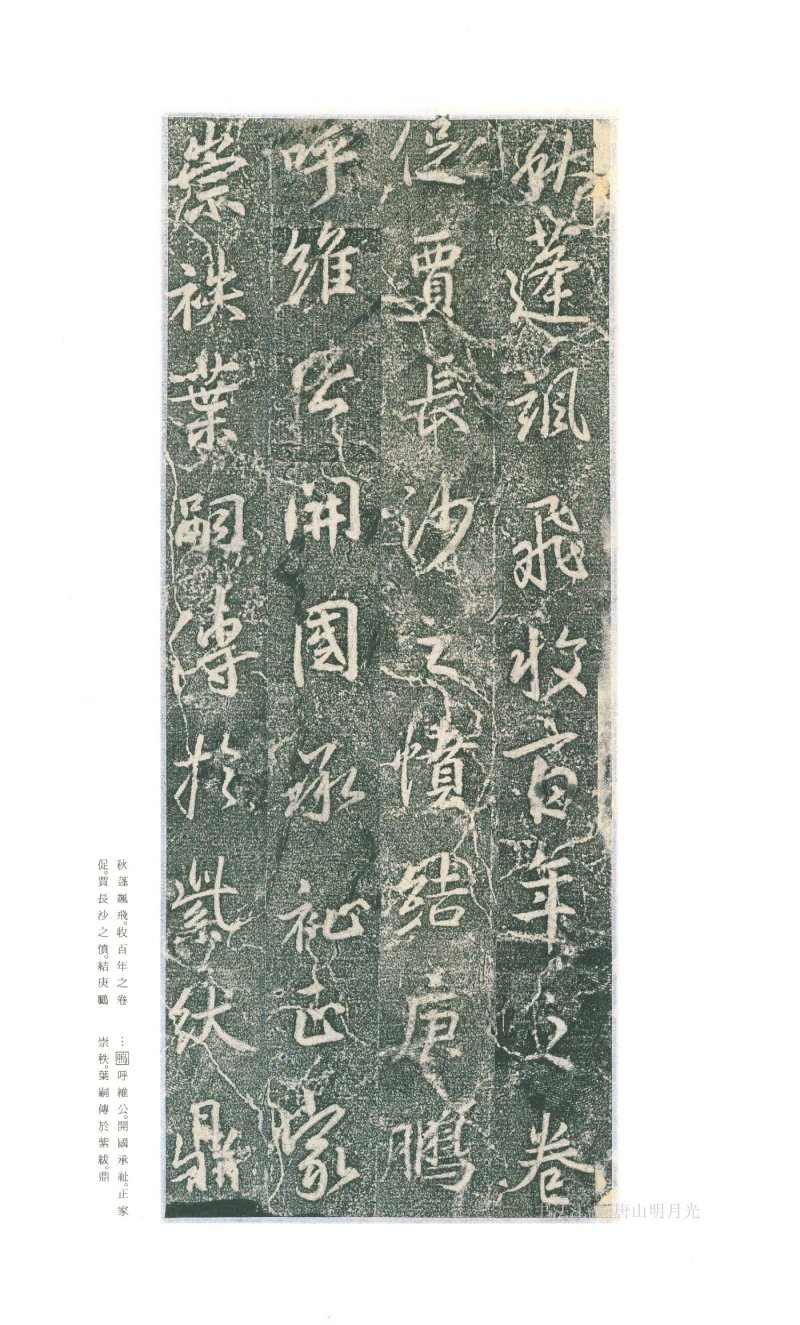 秋蓬颯飛收百年之卷
促賈長沙之憤結庚鵬
呼維公開國承祉正家
崇袟葉嗣傳於紫紱鼎
秋蓬颯飛。收百年之卷
促。賈長沙之憤。結庚鵬
…嗚呼維公。開國承祉。正家
崇秩。葉嗣傳於紫紱。鼎
唐山明月光